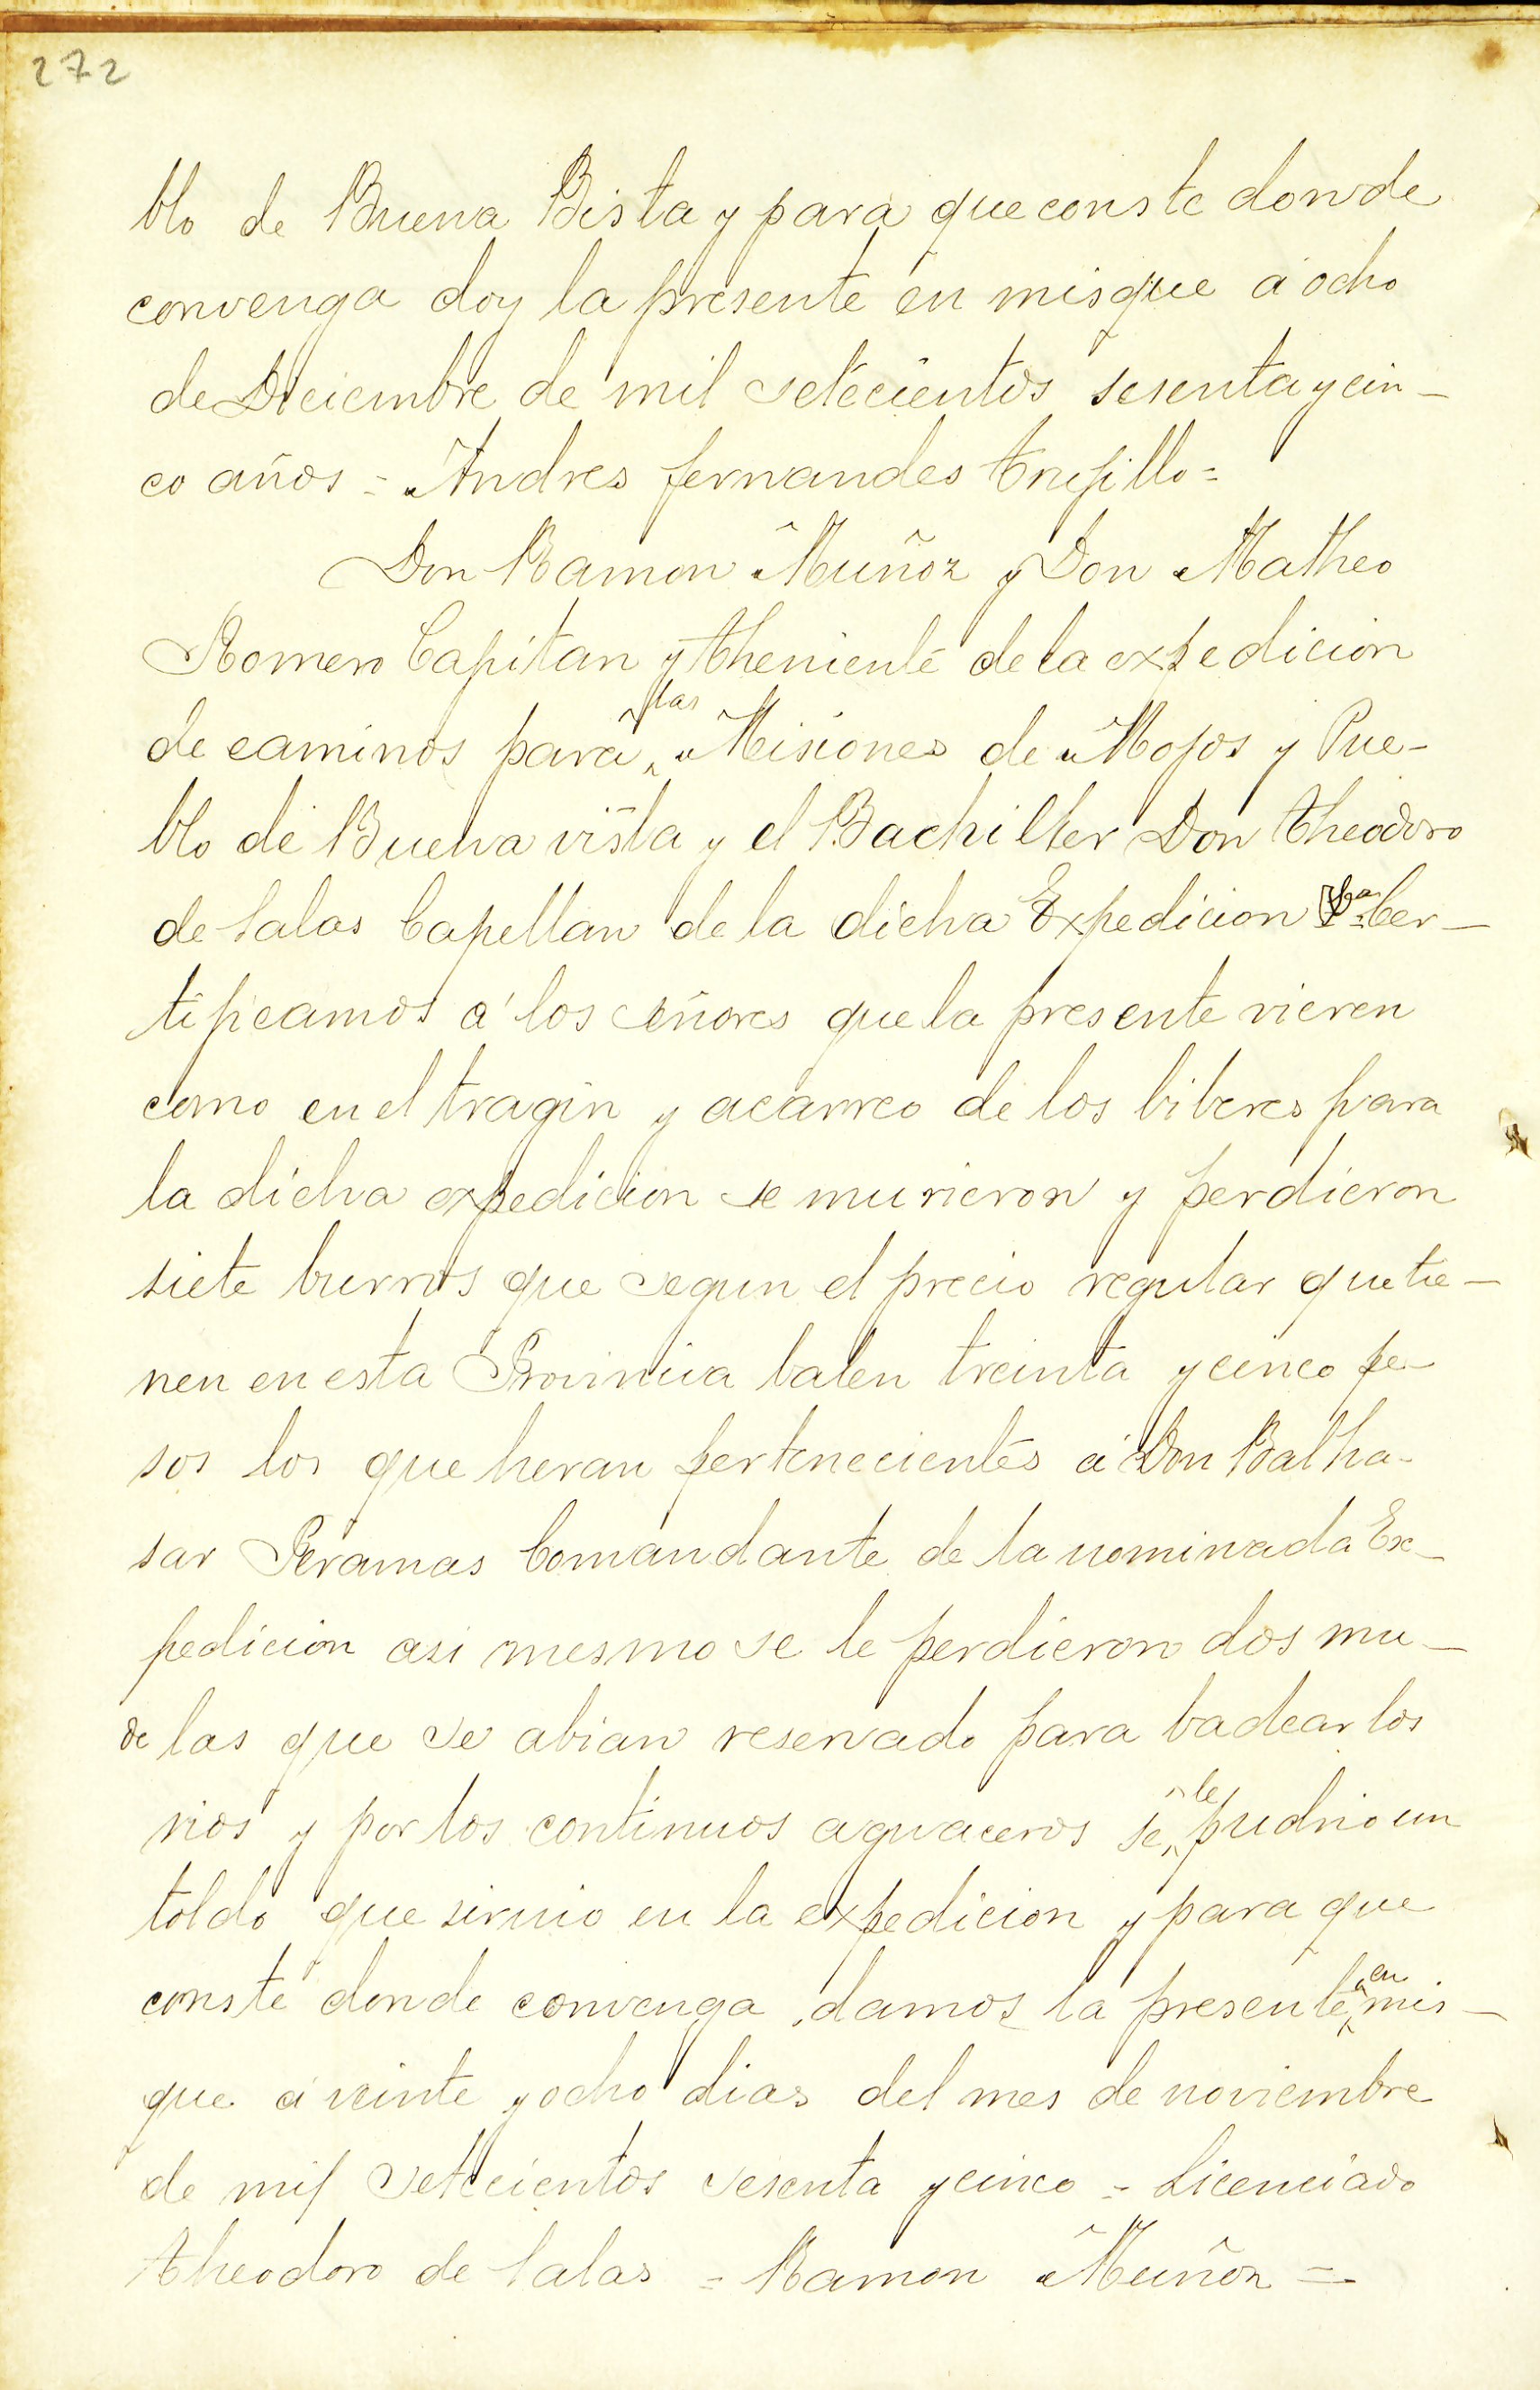 272
blo de Buena Bista y para que conste donde
convenga doy la presente en misque á ocho
de Diciembre de mil setecientos sesenta y cin-
co años = Andres fernandes trujillo =
Don Ramon Muñoz y Don Matheo
Romero Capitan y theniente de la expedicion
de caminos para las Misiones de Mojos y Pue-
blo de Buena vista y el Bachiller Don theodoro
de Salas Capellan de la dicha Expedicion Cer-
tificamos á los señores que la presente vieren
como en el tragin y acarreo de los biberes para
la dicha expedicion se murieron y perdieron
siete burros que segun el precio regular que tie-
nen en esta Provincia balen treinta y cinco pe-
sos los que heran pertenecientes á Don Baltha-
sar Peramas Comandante de la nominada Ex-
pedicion asi mesmo se le perdieron dos mu-
de las que se abian reservado para badear los
rios y por los continuos aguaceros se le pudrio un
toldo que sirvio en la expedicion y para que
conste donde convenga, damos la presente en mis-
que á veinte y ocho dias del mes de noviembre
de mil setecientos sesenta y cinco = Licenciado
theodoro de Salas = Ramon Muñoz =